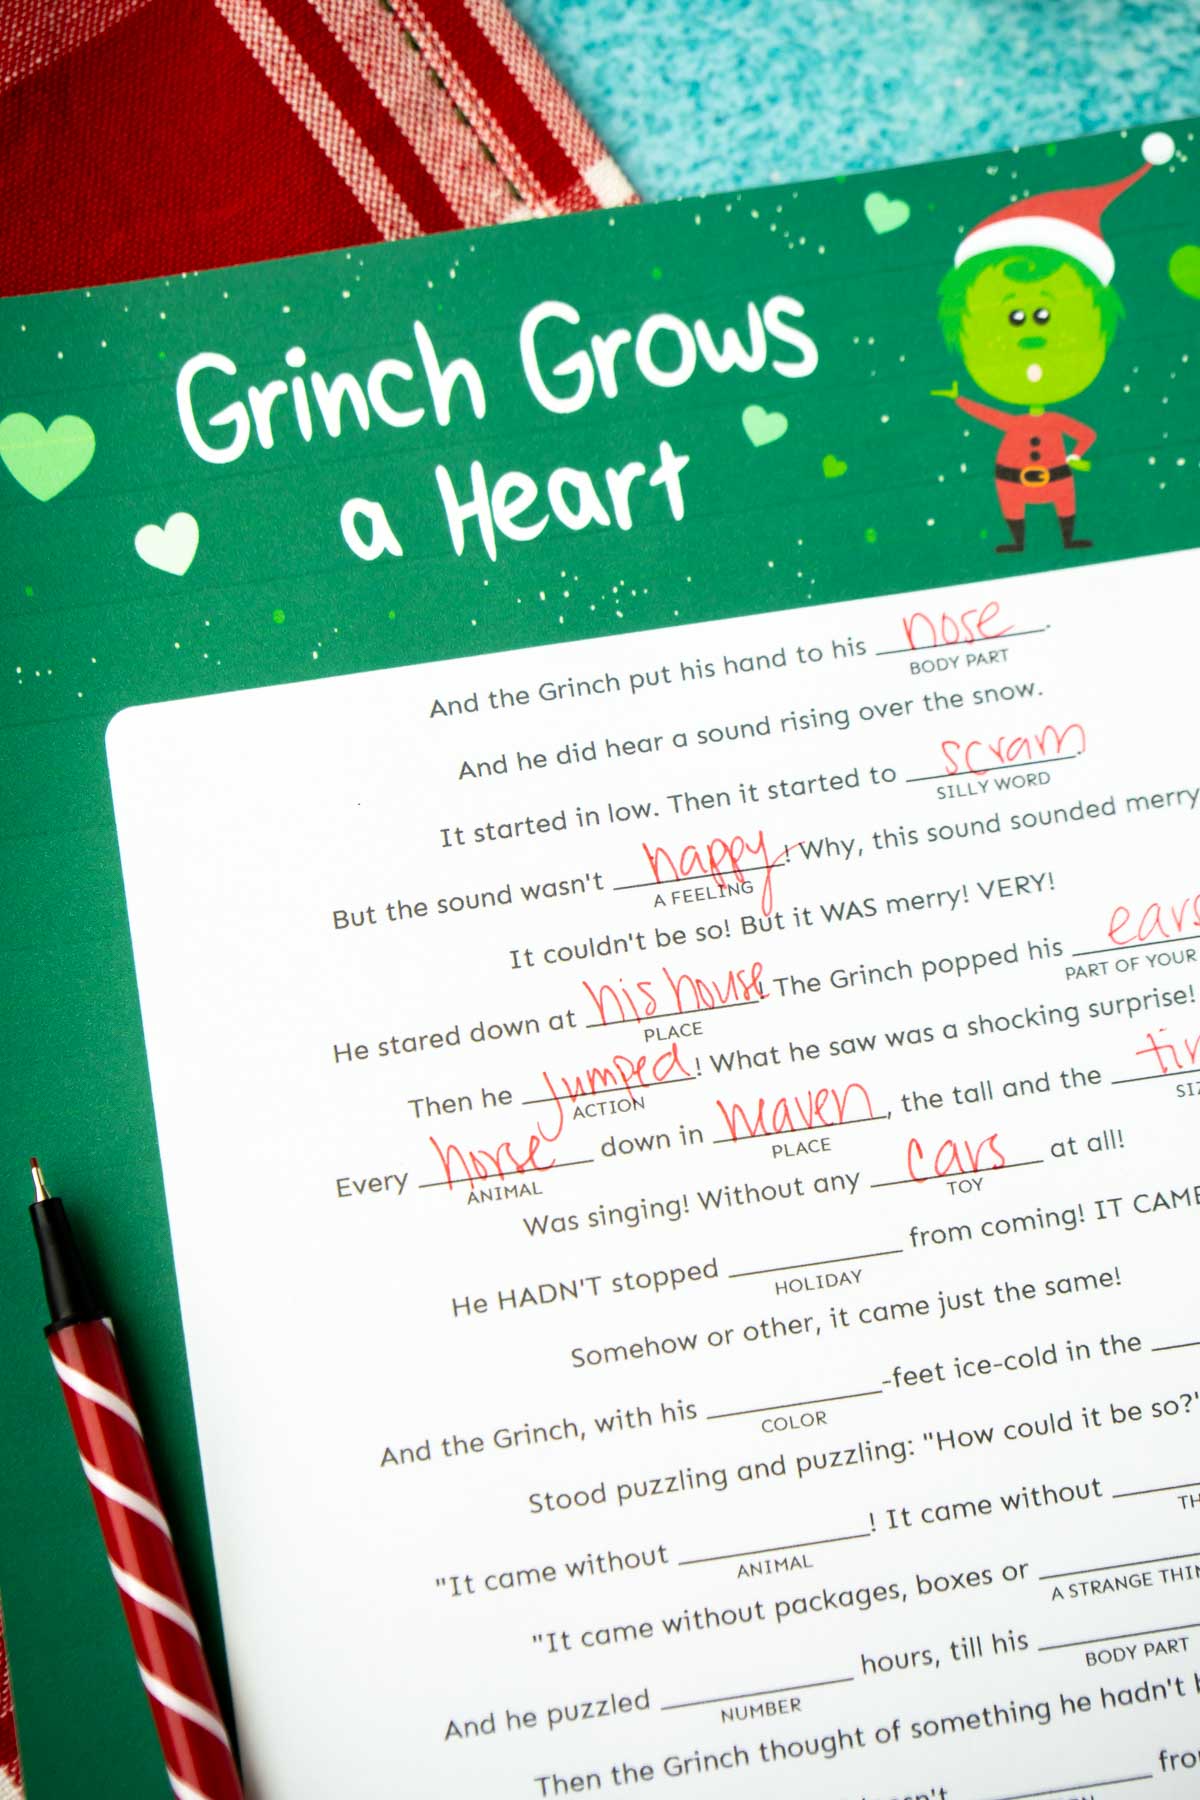 Grinch Grows
a Heart
And the Grinch put his hand to his nose.
BODY PART
And he did hear a sound rising over the snow.
It started in low. Then it started to scram.
SILLY WORD
But the sound wasn't happy! Why, this sound sounded merry
A FEELING
It couldn't be so! But it WAS merry! VERY!
He stared down at his house! The Grinch popped his ears
PLACE PART OF YOUR
Then he jumped! What he saw was a shocking surprise!
ACTION
Every horse down in maven, the tall and the
ANIMAL PLACE
Was singing! Without any cars at all!
TOY
He HADN'T stopped ____ from coming! IT CAME
HOLIDAY
Somehow or other, it came just the same!
And the Grinch, with his ____-feet ice-cold in the ____
COLOR
Stood puzzling and puzzling: "How could it be so?"
"It came without ____! It came without ____
ANIMAL
"It came without packages, boxes or ____
A STRANGE THIN
And he puzzled ____ hours, till his ____
NUMBER BODY PART
Then the Grinch thought of something he hadn't